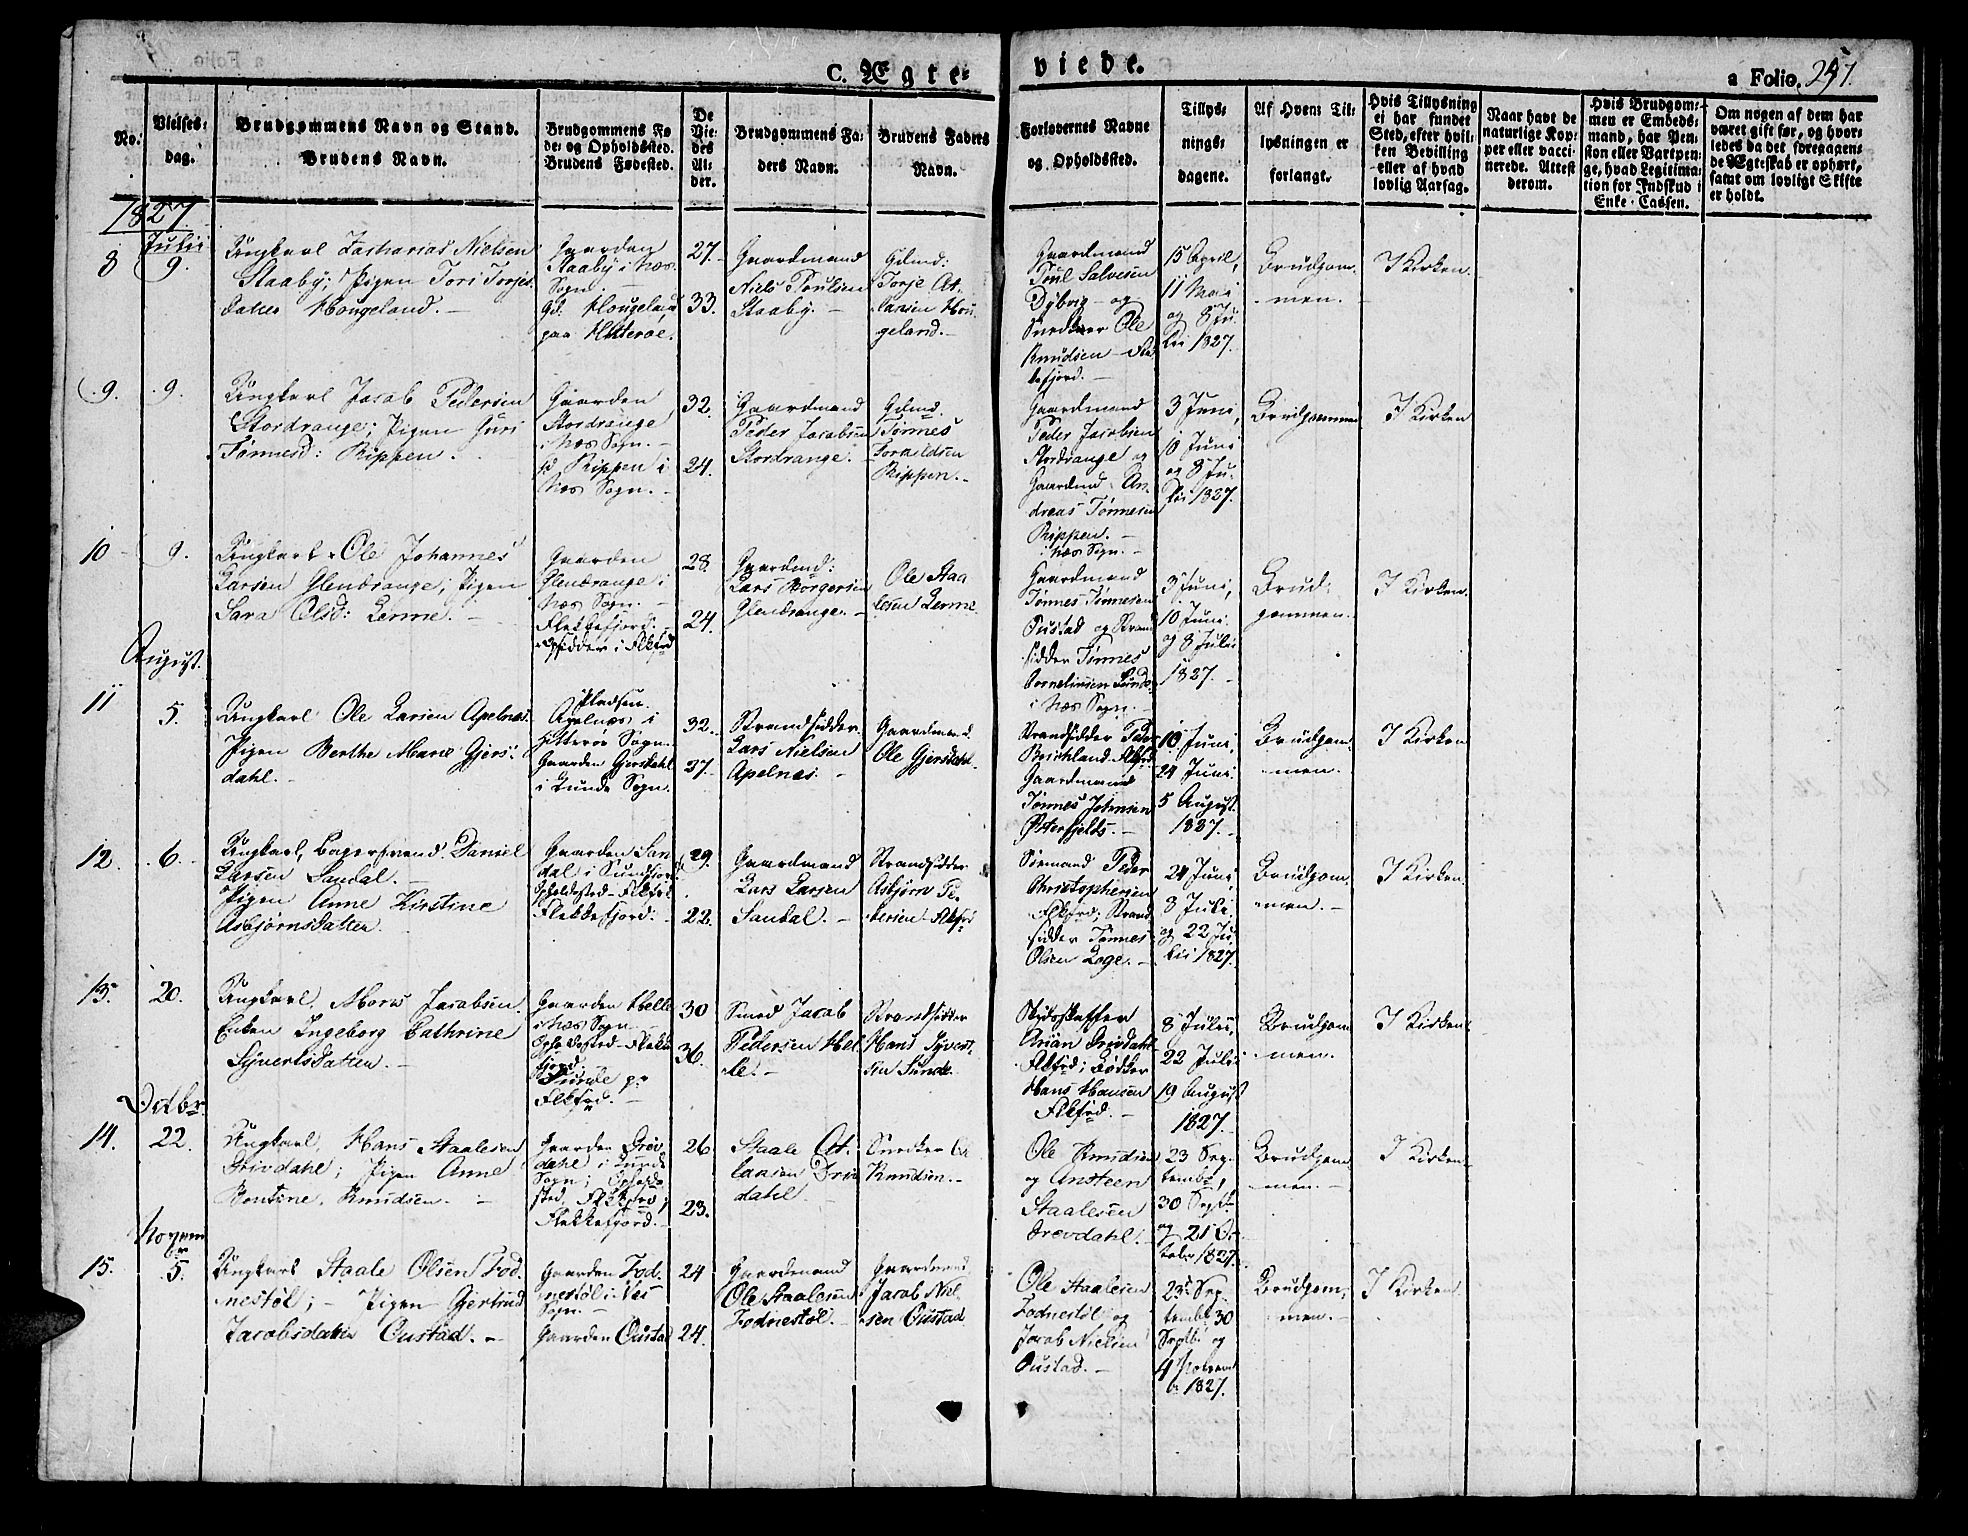 C. Ægte-
viede.
a Folio. 247.
No:
Vielses-
dag.
Brudgommens Navn og Stand.
Brudens Navn.
Brudgommens Fø
de- og Opholdssted.
Brudens Fødested.
De
Vie-
des
Al-
der.
Brudgommens Fa-
ders Navn.
Brudens Faders
Navn.
Forlovernes Navne
og Opholdssted.
Tillys-
nings-
dagene.
Af Hvem Til-
lysningen er
forlangt.
Hvis Tillysning
ei har fundet
Sted, efter hvil-
ken Bevilling
eller af hvad
lovlig Aarsag.
Naar havt de
naturlige Kop-
per eller vacci-
nerede. Attest
derom.
Hvis Brudgom-
men er Embeds-
mand, har Pen-
sion eller Vartpen-
ge, hvad Legitima-
tion for Indskud i
Enke-Cassen.
Om nogen af dem har
været gift før, og hvor-
ledes da det foregaaen-
de Ægteskab er ophørt,
samt om lovligt Skifte
er holdt.
1827
Julii
8
9.
Ungkarl Zacharias Nielsen
Staaby; Pigen Tori Torjes
datter Hougeland.
Gaarden
Staaby i Næs
Sogn.
gd. Hougeland
paa Hitteroe.
27.
33.
Gaardmand
Niels Poulsen
Staaby.
Gdmd:
Torje At-
lacsen Hou-
geland.
Gaardmand
Poul Salvesen
Dybvig og
Snedker Ole
Knudsen Fle
kefjord.
15 April,
11 Mai
og 8 Ju-
lii 1827.
Brudgom-
men.
I Kirken.
9.
9.
Ungkarl Jacob Pedersen
Stordrange; Pigen Guri
Tønnesd: Rippen.
Gaarden
Stordrange
i Næs Sogn.
gd Rippen i
Næs Sogn.
32.
24.
Gaardmand
Peder Jacobsen
Stordrange.
Gdmd.
Tønnes
Torkildsen
Rippen.
Gaardmand
Peder Jacobsen
Stordrange og
Gaardmd. An-
dreas Tønnesen
Rippen.
i Næs Sogn.
3 Juni,
10 Juni
og 8 Ju-
lii 1827.
Brudgommen
I Kirken
10
9.
Ungkarl Ole Johannes
Larsen Glendrange; Pigen
Sara Olsd: Lenne.
Gaarden
Glendrange i
Næs Sogn.
Flekkefjord.
Opsidder i Flkfrd
28.
24.
Gaardmd:
Lars Børgesen
Glendrange.
Ole Staa
lesen Lenne
Gaardmand
Tønnes Tønnesen
Oustad og Strand
sidder Tønnes
Cornelinsen Sunde
i Næs Sogn.
3 Juni,
10 Juni
og 8 Julii
1827.
Brud-
gommen.
I Kirken.
August.
11
5.
Ungkarl Ole Larsen Apelnæs.
Pigen Berthe Marie Gjers-
dahl.
Pladsen
Apelnæs i
Hitterøe Sogn.
Gaarden Gjersdahl
i Lunde Sogn.
32.
37.
Strandsidder
Lars Nielsen
Apelnæs.
Gaardmand
Ole Gjersdahl.
Strandsidder Peder
Birkeland Flkfrd.
Gaardmand
Tønnes Johnsen
Østerfjelds.
10 Juni,
24 Juni
5 August
1827.
Brudgom-
men.
I Kirken
12.
6.
Ungkarl, Bagersvend Daniel
Larsen Sandal.
Pigen Anne Kirstine
Asbjørnsdatter
Gaarden San
dal i Sundfjord
Opholdssted Flkfrd.
Flekkefjord.
29.
22.
Gaardmand
Lars Larsen
Sandal.
Strandsidder
Asbjørn Pe-
dersen Flkfrd
Sømand Peder
Christophersen
Flkfrd; Strand
sidder Tønnes
Olsen Loge.
24 Juni
8 Juli
og 22 Ju-
lii 1827.
Brudgom-
men.
I Kirken.
13.
20.
Ungkarl Jacobsen
Enken Ingeborg Cathrine
Syvertsdatter.
Gaarden Helle
i Næs Sogn
Opholdssted Flekke
fjord.
Flkfrd.
30
36.
Smed Jacob
Pedersen Hel-
le.
Strandsidder
Hans Syvert-
sen Sunde
Skydsskaffer
Arian Drivdahl
Flkfrd; Bødker
Hans Hansen
Flkfrd.
8 Julii,
22 Julii
19 August
1827.
Brudgom-
men.
I Kirken
Octbr
14.
22.
Ungkarl Hans Staalesen
Drivdahl; Pigen Anne
Bentine Knudsen.
Gaarden Driv
dahl i Lunde
Sogn; Opholds
sted Flkfrd;
Flekkefjord.
26.
23.
Staale At-
lacsen Driv
dahl
Snedker Ole
Knudsen.
Ole Knudsen
og Ansteen
Staalesen
Drevdahl.
23 Sep-
tembr,
30 Septr
og 21 Oc-
tobr 1827.
Brudgom-
men.
I Kirken
Novem
br
15.
5.
Ungkarl Staale Olsen Lod-
nestøl; Pigen Gjertrud
Jacobsdatter Oustad.
Gaarden Lod-
nestøl i Næs
Sogn
Gaarden Oustad
24
24.
Gaardmand
Ole Staalesen
Lodnestøl.
Gaardmand
Jacob Niel-
sen Oustad
Ole Staalesen
Lodnestøl og
Jacob Nielsen
Oustad.
23 Sep-
tembr 30
Septbr og
4 Novem
br 1827.
Brudgom-
men.
I Kirken